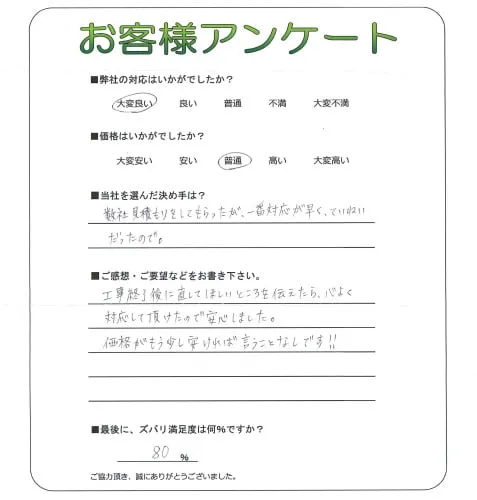 お客様アンケート
■弊社の対応はいかがでしたか？
大変良い 良い 普通 不満 大変不満
■価格はいかがでしたか？
大変安い 安い 普通 高い 大変高い
■当社を選んだ決め手は？
数社見積もりをしてもらったが、一番対応が早く、ていねい
だったので。
■ご感想・ご要望などをお書き下さい。
工事終了後に直してほしいところを伝えたら、心よく
対応して頂けたので安心しました。
価格がもう少し安ければ言うことなしです!!
■最後に、ズバリ満足度は何％ですか？
80 %
ご協力頂き、誠にありがとうございました。